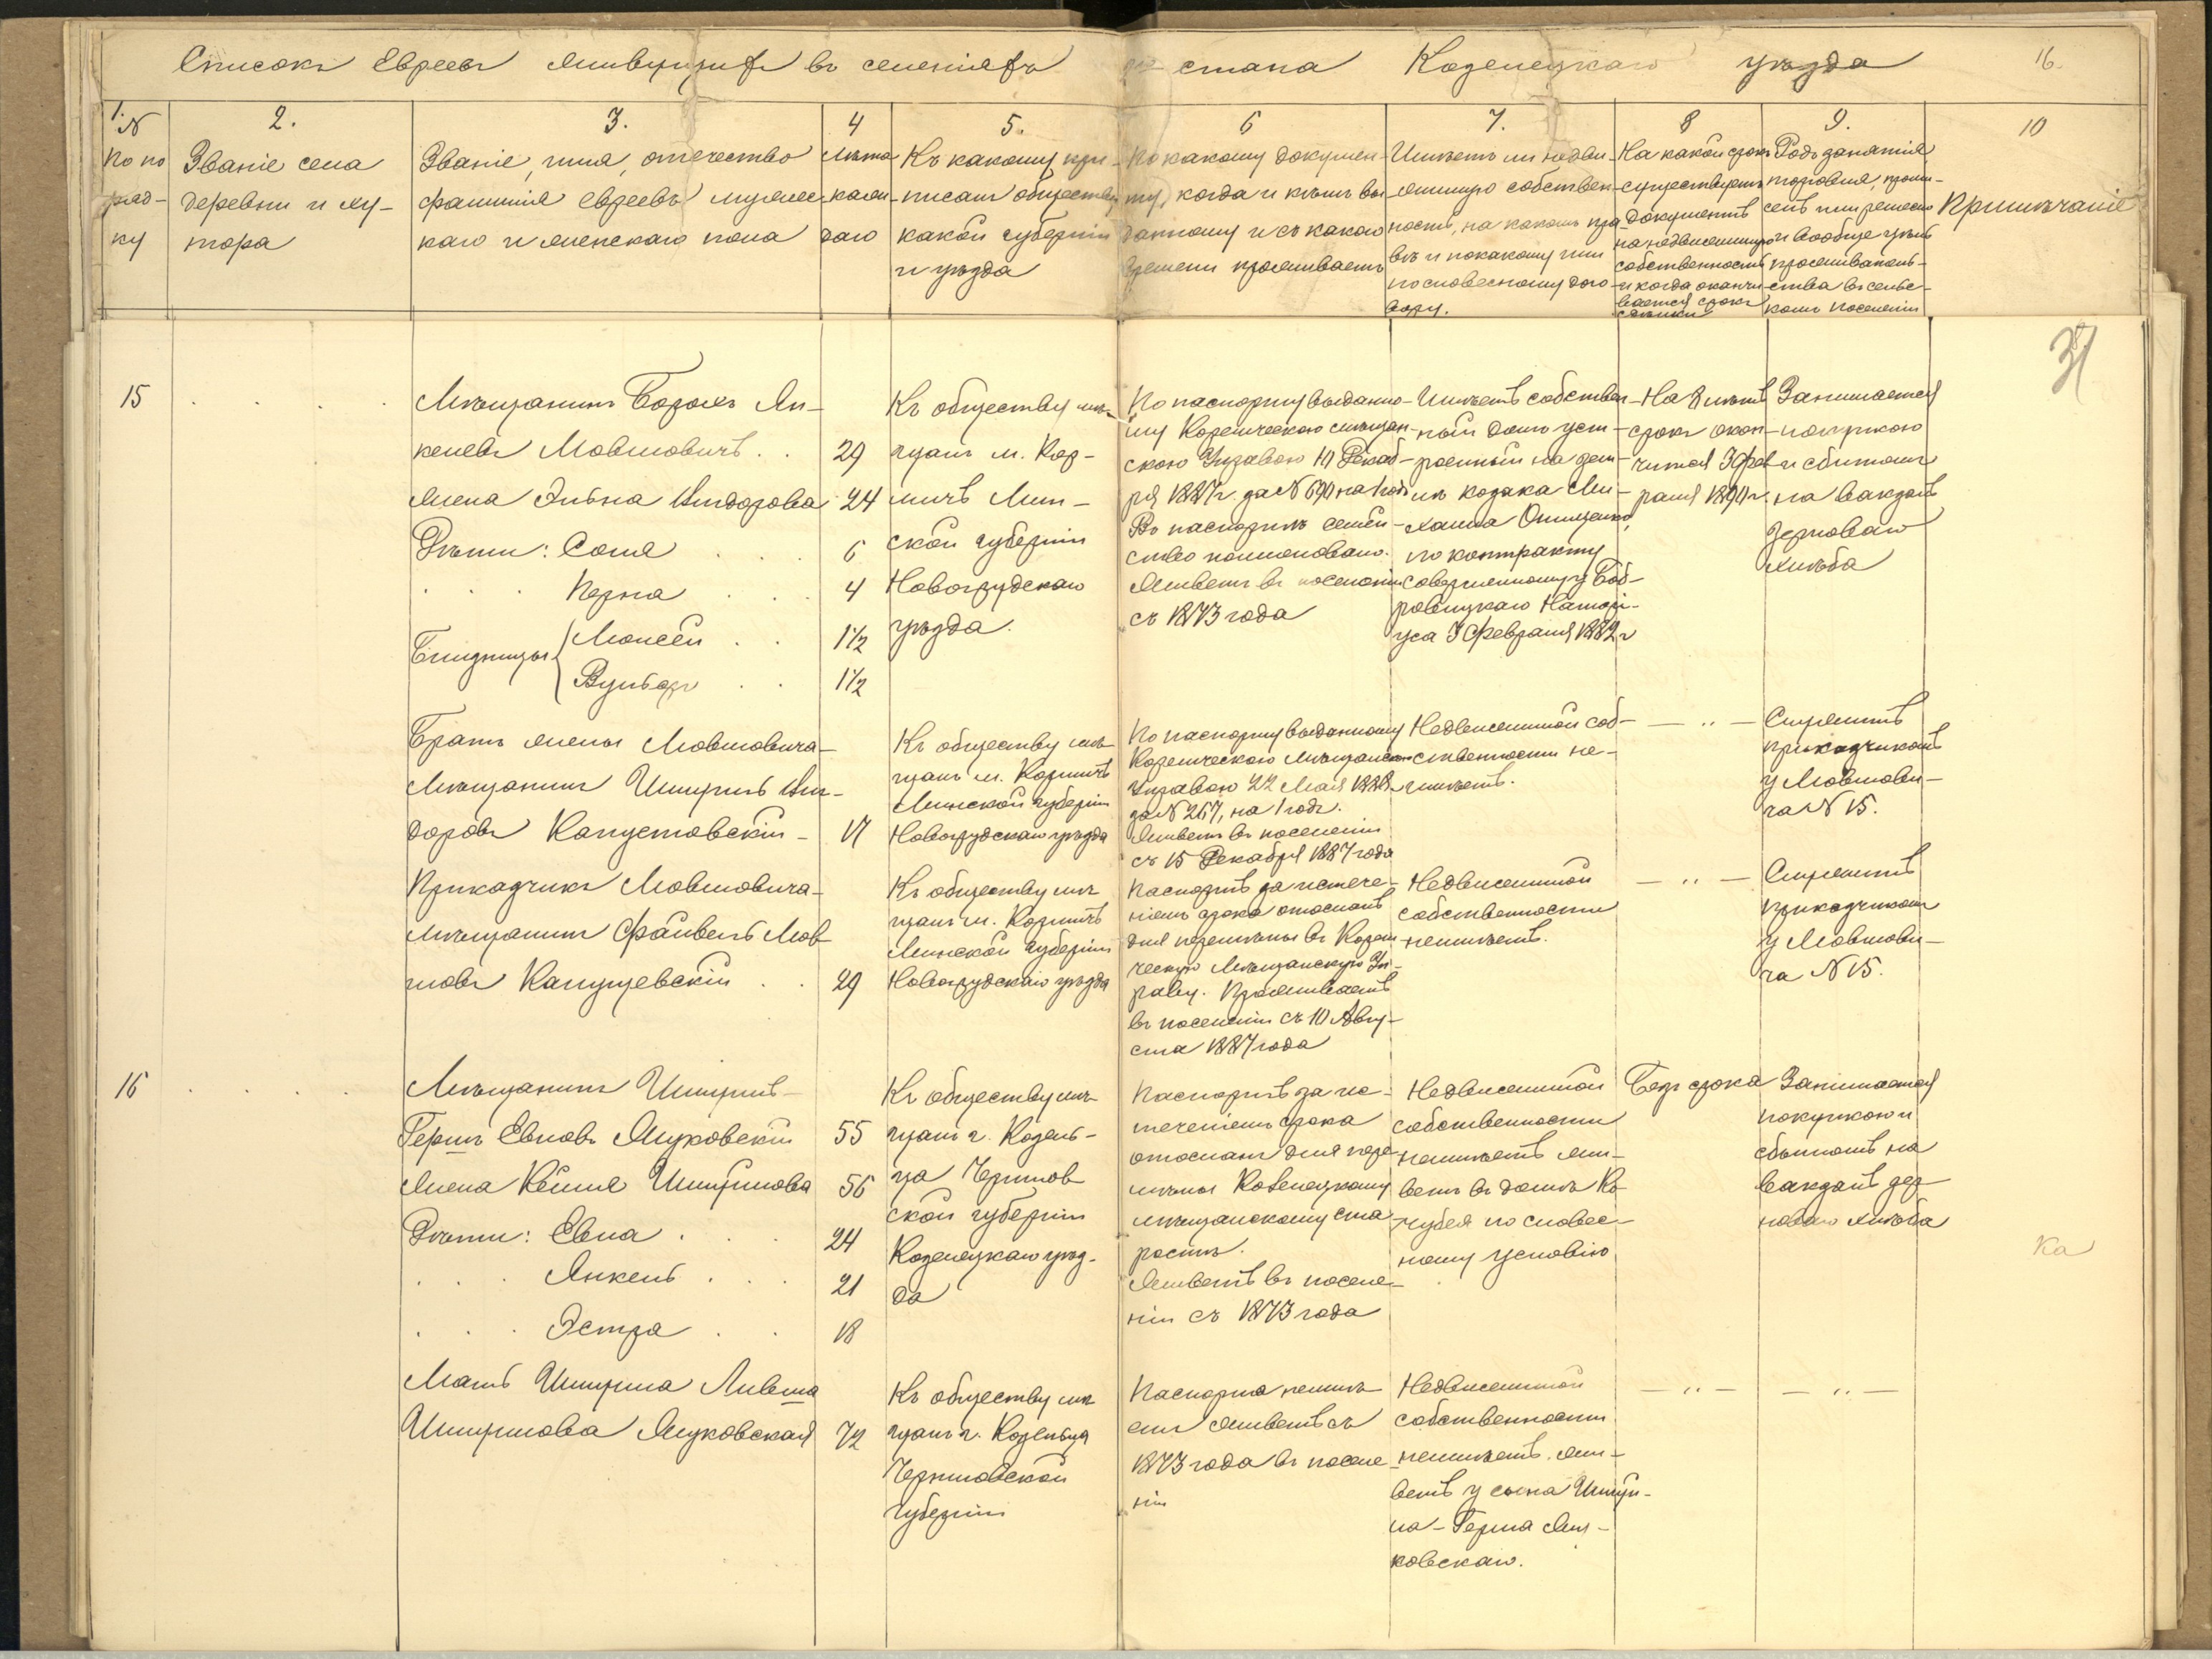 Списокъ Евреевъ живущихъ въ селеніяхъ стана Козелецкаго уѣзда
16.
1. 2. 3. 4 5. 6 7. 8 9. 10
№
По по
ряд-
ку
Званіе села
деревни и ху-
тора
Званіе, имя, отчество
фамилія евреевъ мужес-
каго и женскаго пола
Лѣта
каж-
даго
Къ какому при-
писанъ обществу
какой губерніи
и уѣзда
По какому докумен-
ту, когда и кѣмъ вы-
данному и съ какого
времени проживаетъ
Имѣетъ ли недви-
жимую собствен-
ность, на какомъ пра-
вѣ и по какому или
по словесному дого-
вору.
На какой срокъ
существуетъ
документъ
на недвижимую
собственность
и когда оканчи-
вается срокъ
Родъ занятія
торговля, промы-
селъ или ремесло
и вообще цѣль
прожитательс-
ства въ сельс-
комъ поселеніи
Примѣчаніе
37
15
Мѣщанинъ Борохъ Ян-
келевъ Мовшовичъ . . 29
Жена Эльна Видорова 24
Дѣти: Соня 6
Перна 4
Близнецы { Моисей . . 1½
Вульфъ . . 1½
Къ обществу мѣ-
щанъ м. Кор-
личъ Мин-
ской губерніи
Новогрудскаго
уѣзда.
По паспорту выданно-
му Кореличскою мѣщан-
скою Управою 17 Декаб-
ря 1887 г. за № 690 на 1 годъ
Въ паспортѣ семей-
ство поименовано.
Живетъ въ поселеніи
съ 1873 года
Имѣетъ собствен-
ный домъ уст-
роенный на зем-
лѣ козака Ми-
хаила Онищенко,
по контракту
совершенному у Боб-
ровицкаго Нотарі-
уса 3 Февраля 1882 г
На 8 лѣтъ
срокъ окон-
чится 3 Фев-
раля 1890 г.
Занимается
покупкою
и сбытомъ
на вакзалъ
зерноваго
хлѣба
Братъ жены Мовшовича-
Мѣщанинъ Шмуиль Ви-
доровъ Капустовскій - 17
Къ обществу мѣ-
щанъ м. Корличъ
Минской губерніи
Новогрудскаго уѣзда
По паспорту выданному
Кореличскою мѣщанскою
Управою 22 Мая 1888 г.
за № 267, на 1 годъ.
Живетъ въ поселеніи
съ 15 Декабря 1887 года
Недвижимой соб-
ственности не-
имѣетъ.
— „ —
Служитъ
прикащикомъ
у Мовшови-
ча № 15.
Прикащикъ Мовшовича-
мѣщанинъ Файвель Мов-
шовъ Капущевскій . . 29
Къ обществу мѣ-
щанъ м. Корличъ
Минской губерніи
Новогрудскаго уѣзда
Паспортъ за истече-
ніемъ срока отосланъ
для перемѣны въ Корели-
ческую Мѣщанскую Уп-
раву. Проживаетъ
въ поселеніи съ 10 Авгу-
ста 1887 года
Недвижимой
собственности
неимѣетъ.
— „ —
Служитъ
прикащикомъ
у Мовшови-
ча № 15.
16
Мѣщанинъ Шмуиль-
Гершъ Евновъ Жуковскій 55
Жена Кейля Шмуилова 56
Дѣти: Евна . . . 24
Янкель . . . 21
Эстра . . 18
Къ обществу мѣ-
щанъ г. Козель-
ца Чернигов-
ской губерніи
Козелецкаго уѣз-
да
Паспортъ за ис-
теченіемъ срока
отосланъ для пере-
мѣны Козелецкому
мѣщанскому ста-
ростѣ.
Живетъ въ поселе-
ніи съ 1873 года
Недвижимой
собственности
неимѣетъ жи-
ветъ въ домѣ Ко-
чубея по словес-
ному условію
Безъ срока
Занимается
покупкою и
сбытомъ на
вакзалъ зер-
новаго хлѣба
Ка
Мать Шмуила Ливша
Шмуилова Жуковская 72
Къ обществу мѣ-
щанъ г. Козельца
Черниговской
губерніи
Паспорта неимѣ-
етъ живетъ съ
1873 года въ поселе-
ніи
Недвижимой
собственности
неимѣетъ. жи-
ветъ у сына Шмуи-
ла-Герша Жу-
ковскаго.
— „ — — „ —